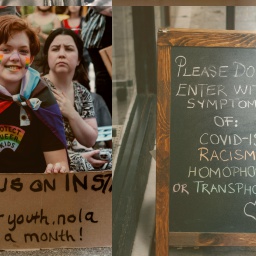 PROTECT
QUEER
KIDS
US ON INST
youth.nola
a month!
PLEASE DO
ENTER WIT
SYMPTOM
OF:
COVID-19
RACISM
HOMOPHO
OR TRANSPHO